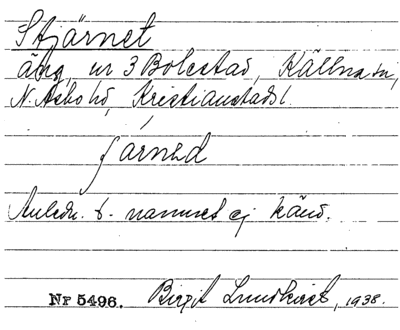 Stjärnet
äng, nr 3 Bolestad, Källna sn,
N. Åsbo hd, Kristianstads l.
järnəd
Anledn. t. namnet ej känd.
Nr 5496. Birgit Lundkvist, 1938.